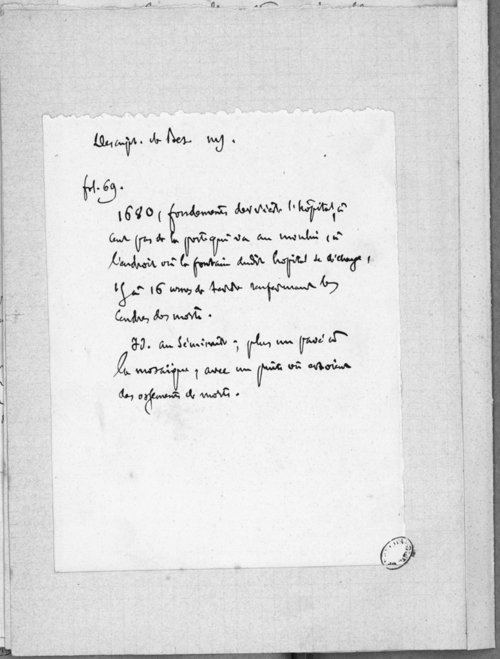 Descript. de Bes. ms.
fol. 69.
1680, fondements derrière l'hôpital, à
cent pas de la porte qui va au moulin, à
l'endroit où la fontaine dudit hôpital se décharge,
16 urnes de terre renfermant les
cendres des morts.
Id. au Séminaire, plus un pavé à
la mosaïque, avec un puits où estoient
des ossements de morts.